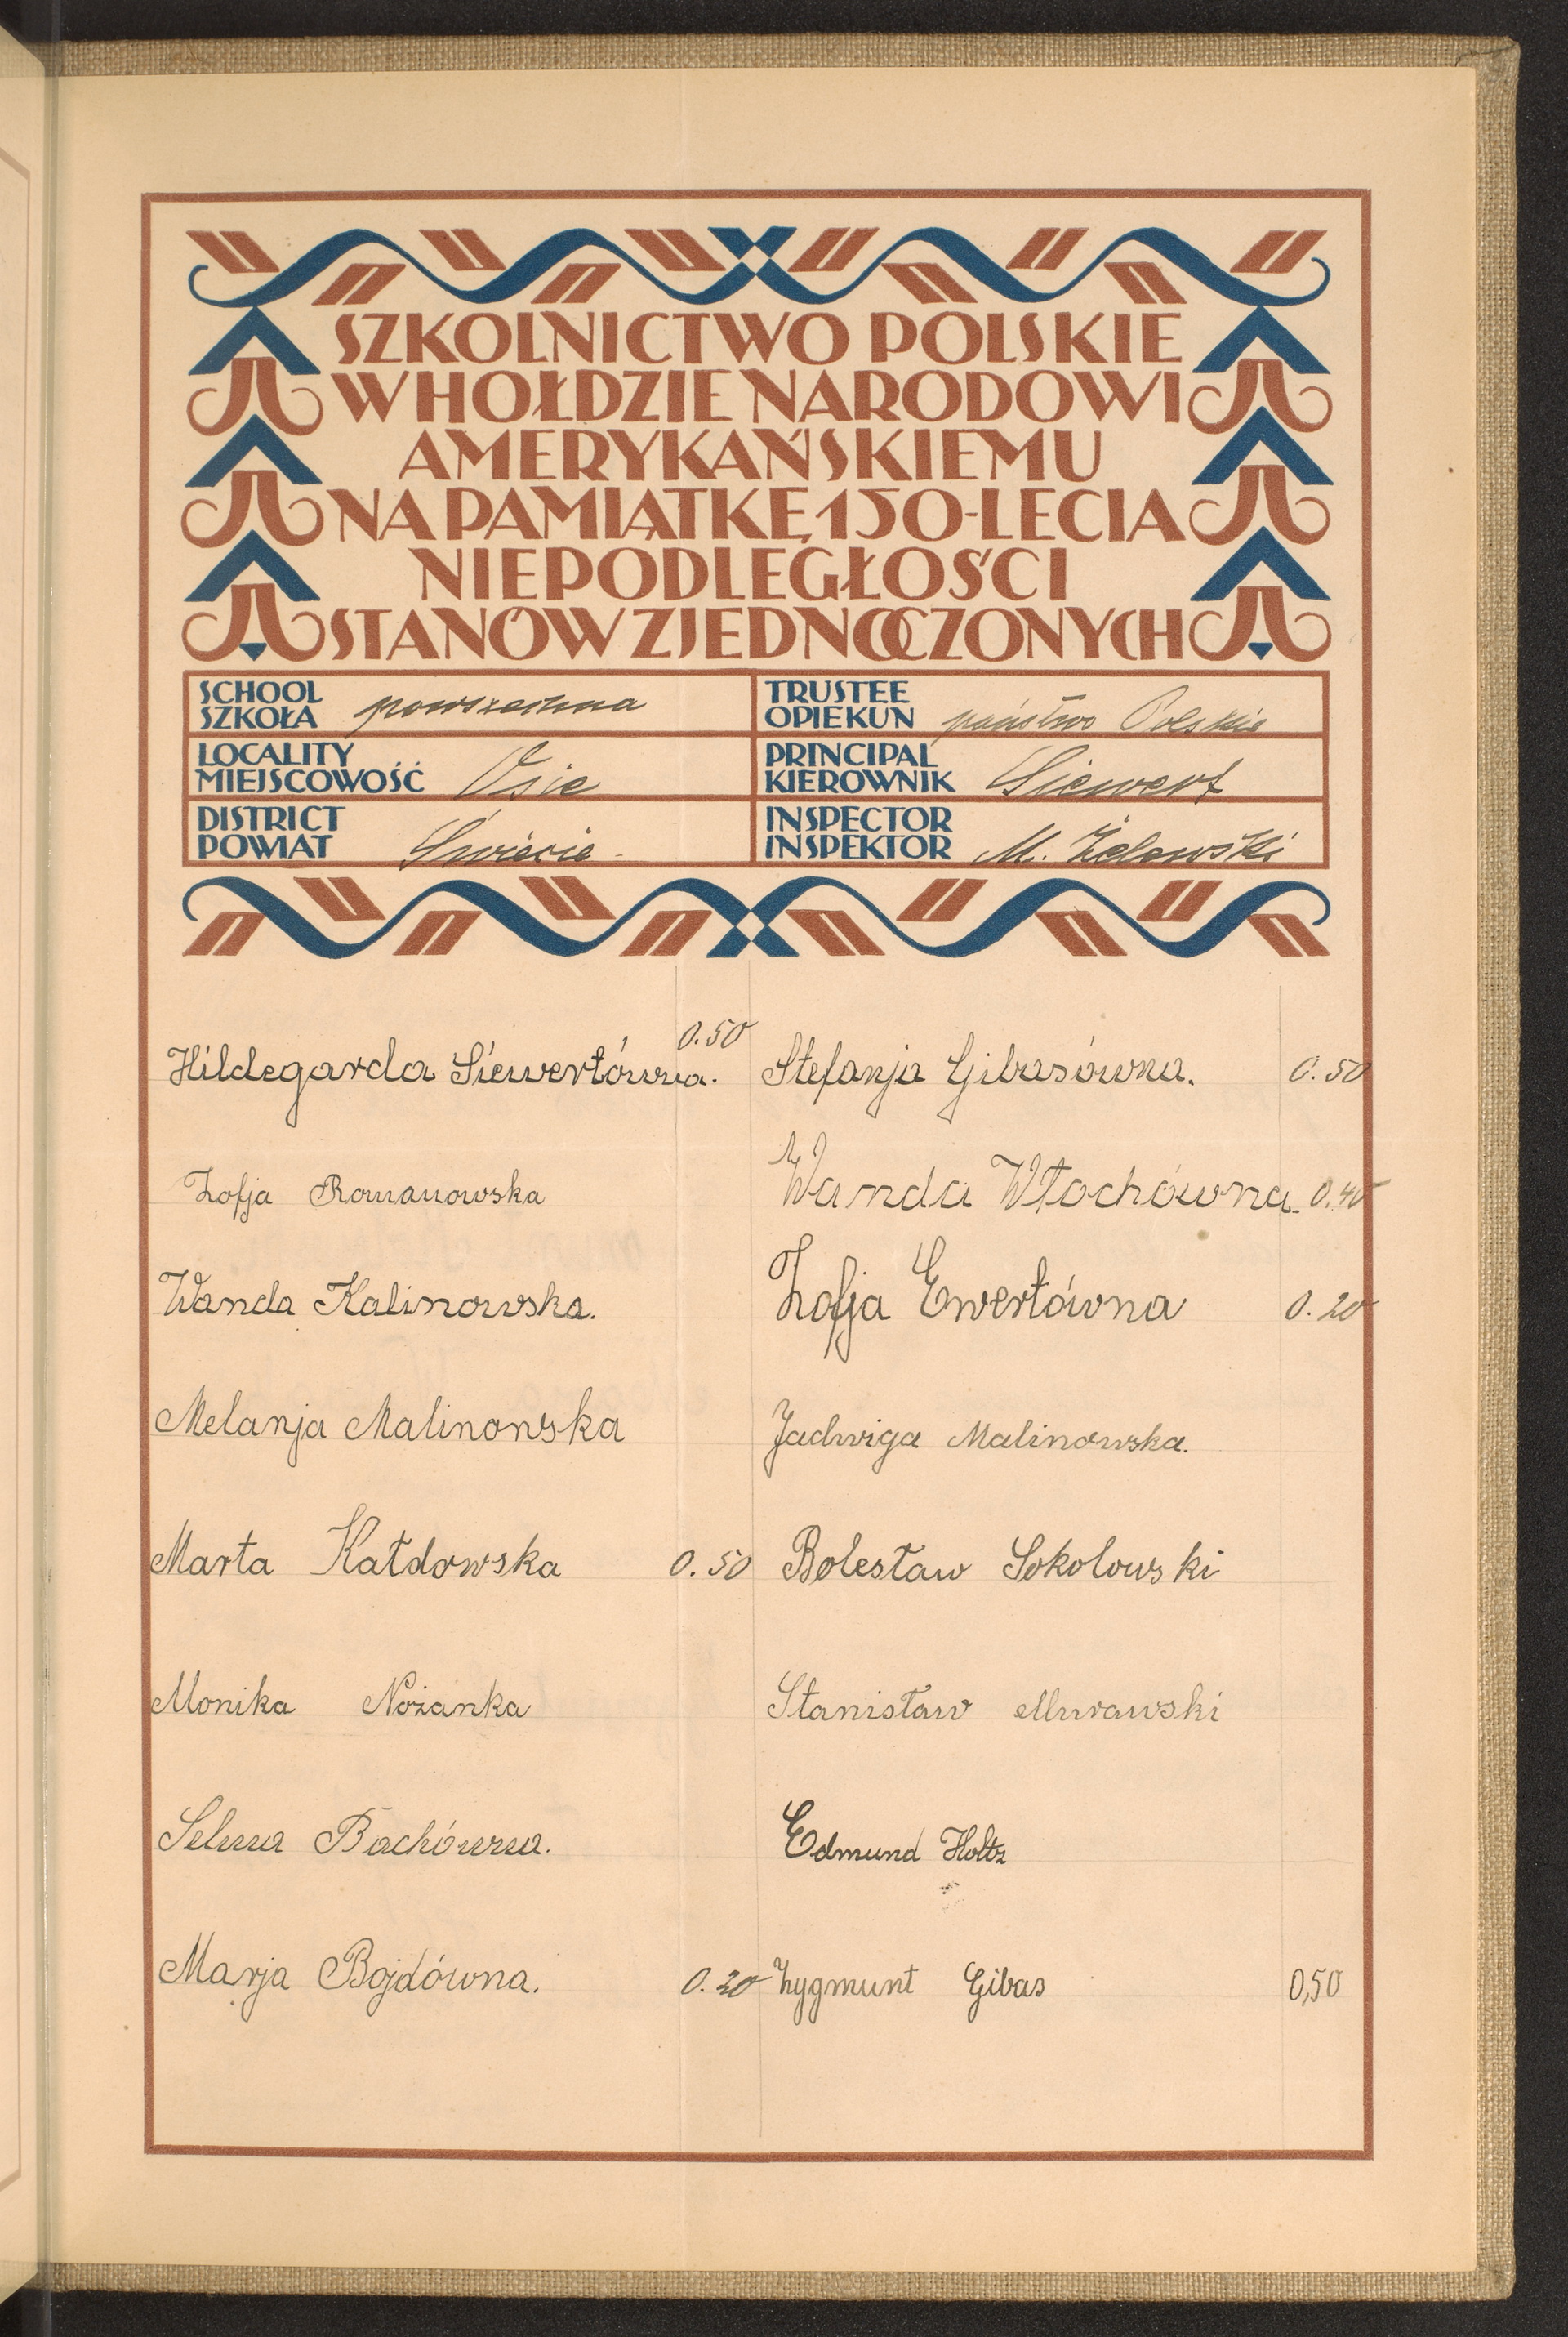 SZKOLNICTWO POLSKIE
W HOŁDZIE NARODOWI
AMERYKAŃSKIEMU
NA PAMIĄTKĘ 150-LECIA
NIEPODLEGŁOŚCI
STANÓW ZJEDNOCZONYCH
SCHOOL
SZKOŁA powszechna
TRUSTEE
OPIEKUN państwo Polskie
LOCALITY
MIEJSCOWOŚĆ Osie
PRINCIPAL
KIEROWNIK Siewert
DISTRICT
POWIAT Świecie
INSPECTOR
INSPEKTOR M. Żelewski
Hildegarda Siewertówna. 0.50
Zofja Romanowska
Wanda Kalinowska.
Melanja Malinowska
Marta Kałdowska 0.50
Monika Nożanka
Selma Bachówna.
Marja Bojdówna. 0.20
Stefanja Gibasówna. 0.50
Wanda Włochówna. 0.40
Zofja Ewertówna 0.20
Jadwiga Malinowska.
Bolesław Sokolowski
Stanisław Murawski
Edmund Holtz
Zygmunt Gibas 0,50